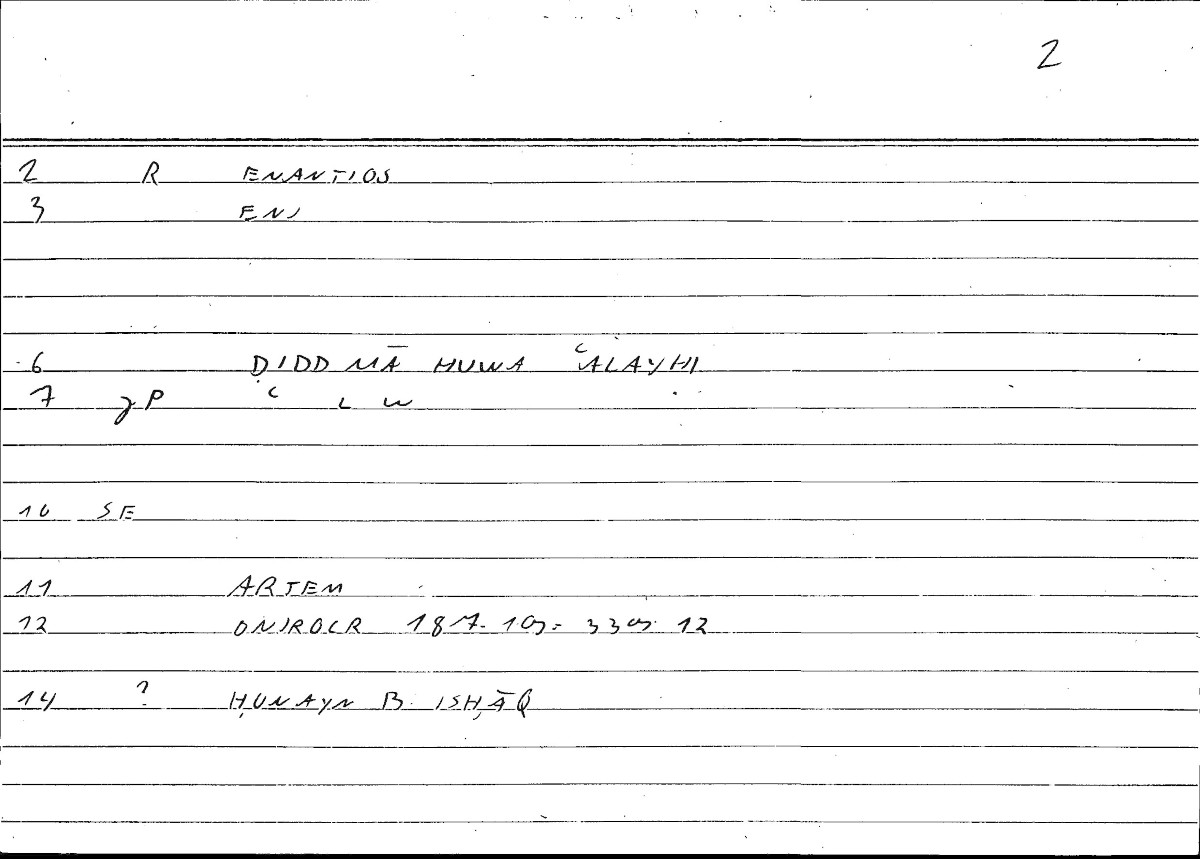 2
2 R ENANTIOS
3 ENI
6 ḌIDD MĀ HUWA ʿALAYHI
7 gP ʿ L W
10 SE
11 ARTEM
12 ONIROCR 187. 12
14 ? ḤUNAYN B. ISḤĀQ